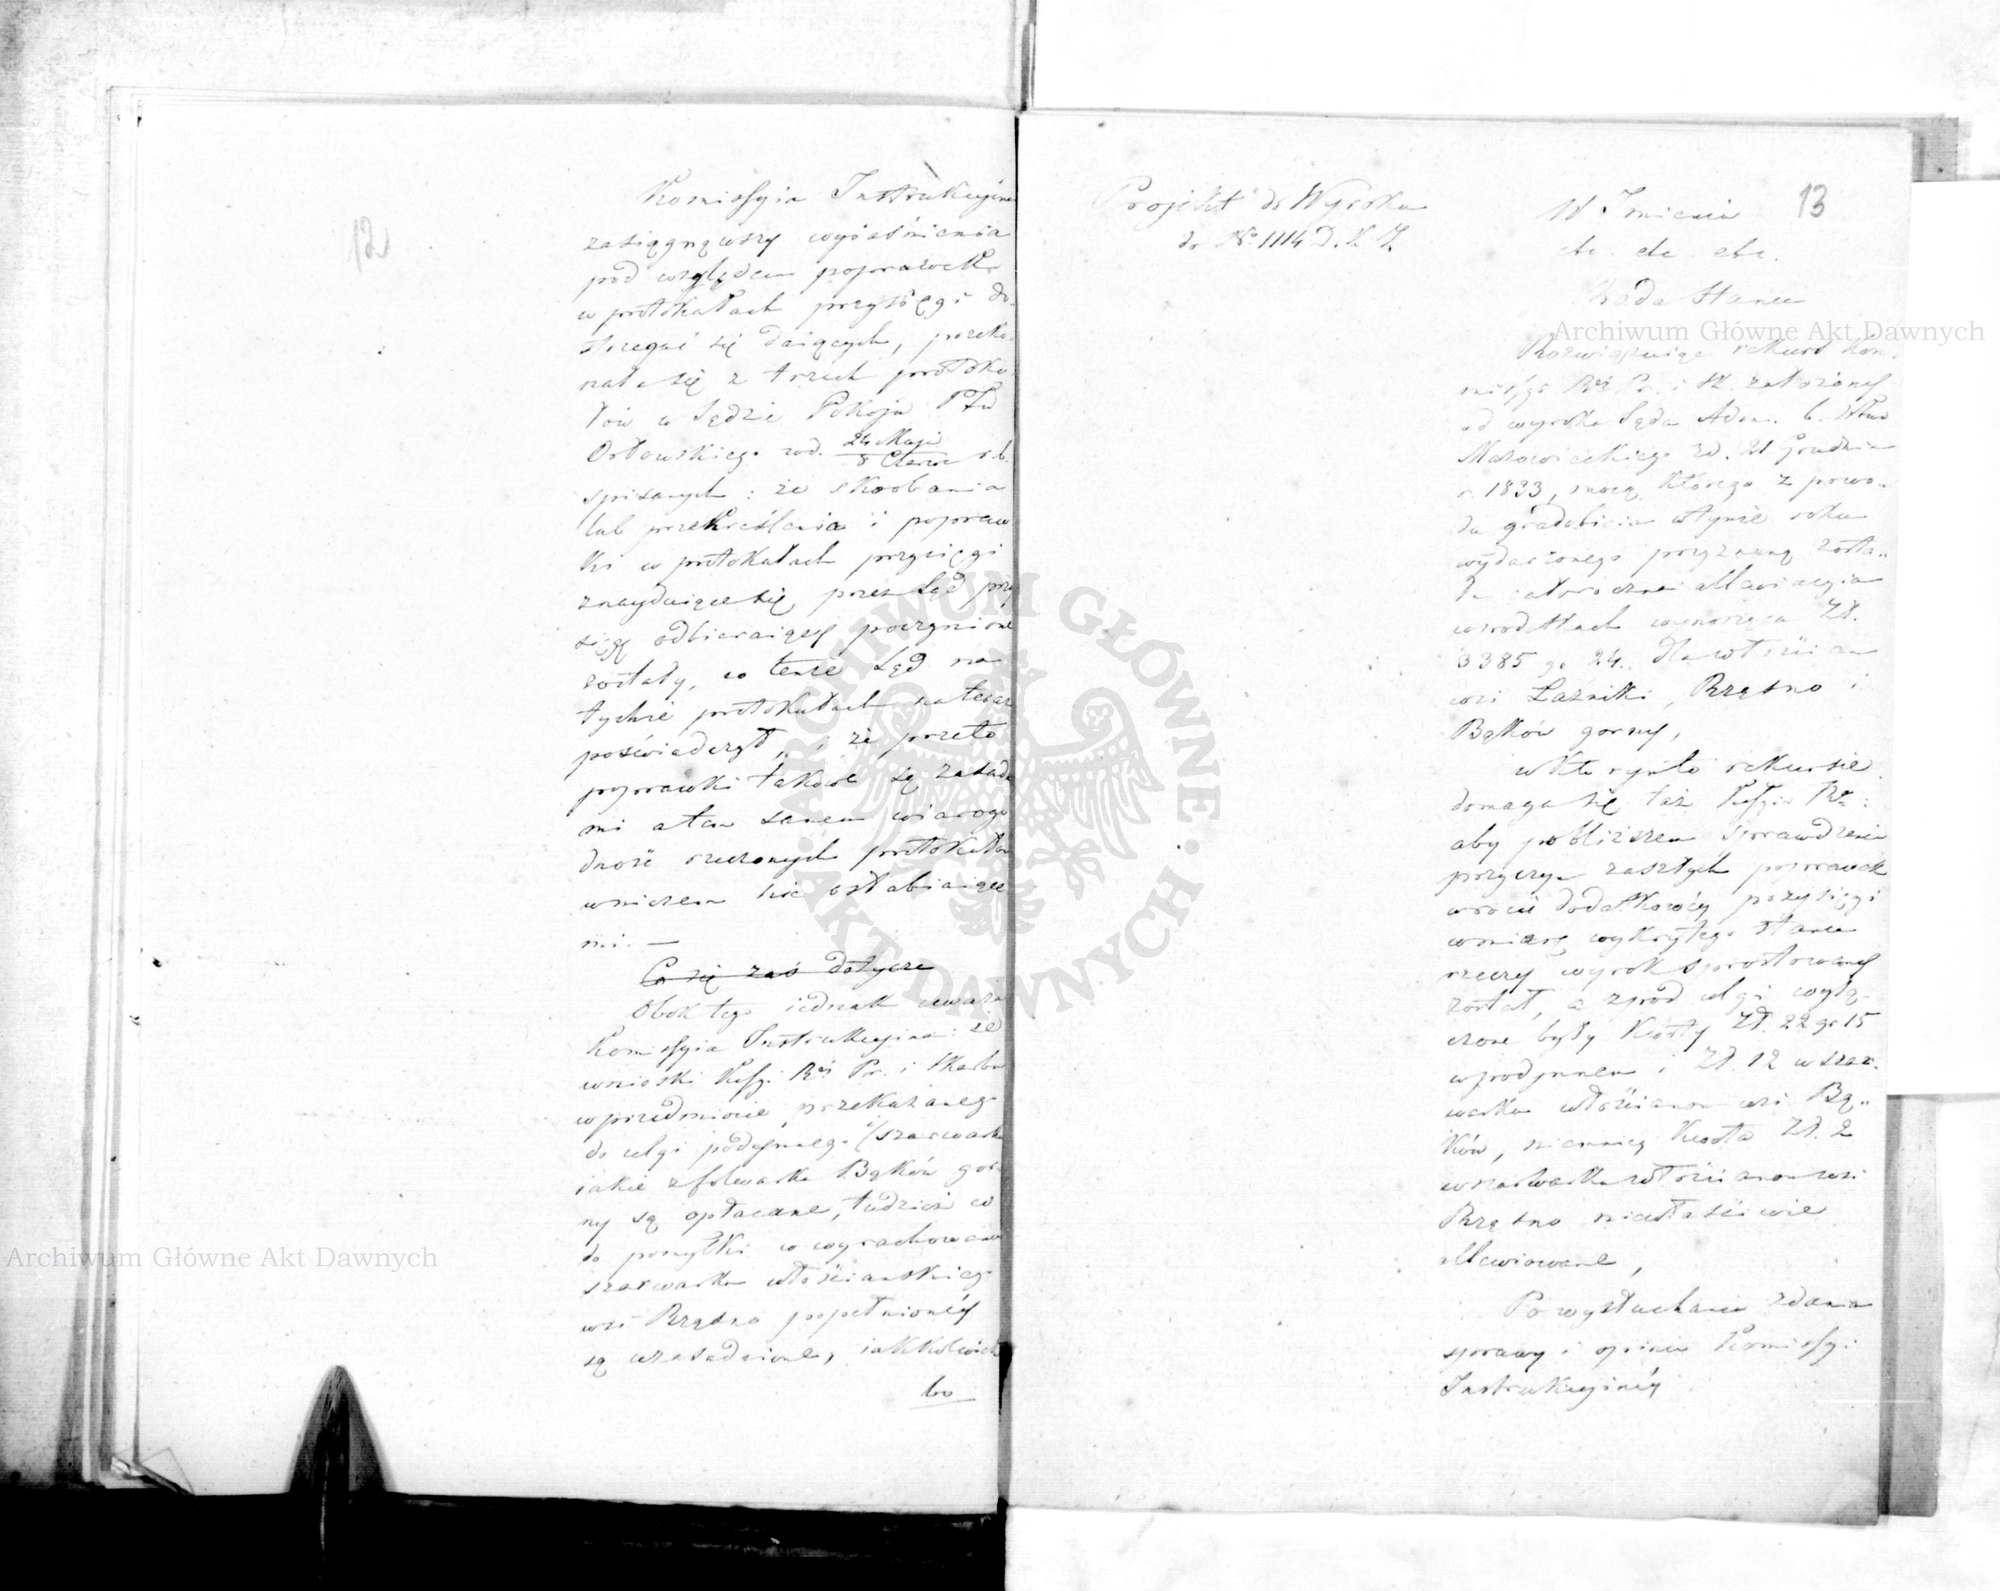 12
Komissyia Instrukcyina
zasiągnąwszy wyiaśnienia
pod względem poprawek
w protokułach przysięgi do-
strzegać się daiących, przeko-
nała się z trzech protoku-
łów w Sądzie Pokoju Ptu
Orłowskiego pod. 24 Maja / 5 Czerw r. b.
spisanych: że skrobania
lub przekreślenia i popraw-
ki w protokułach przysięgi
znayduiące się, przez Sąd przy-
sięgę odbieraiący poczynione
zostały, co tenże Sąd na
tychże protokułach
poświadczył, i że przeto
poprawki takowe są
mi a tem samem wiarogo-
dność rzeczonych protokułów
w niczem nie osłabiaiące-
mi. —
Co się zaś dotycze
Obok tego iednak uważa
Komissyia Instrukcyina: że
wnioski Kssyi Rei Pr. i Skarbu
w przedmiocie przekazanego
do ulgi podymnego i szarwarku
iakie z folwarku Bąków gór-
ny są opłacane, tudzież co
do pomyłki w wyrachowaniu
szarwarku włościańskiego
wsi Rząsno popełnionéy
są uzasadnione, iakkolwiek
bo
Projekt do Wyroku
do No 1114 D. K. I.
13
W Imieniu
etc. etc. etc.
Rada Stanu
Rozwiązuiąc rekurs Kom-
missyi Rei Pr. i Sk. założony
od wyroku Sądu Adm. b. Wtwa
Mazowieckiego z d. 21 Grudnia
r. 1833, mocą którego z powo-
du gradobicia w tymże roku
wydarzonego przyznaną zosta-
ła całoroczna allewiacyia
w podatkach wynosząca Zł.
3385 gr 24. dla włościan
wsi Łaźniki, Rząsno i
Bąków gorny,
w którymto rekursie
domaga się taż Kssyia Rwa:
aby po bliższem sprawdzeniu
przyczyn zaszłych poprawek
w rocie dodatkowéy przysięgi
w miarę wykrytego stanu
rzeczy wyrok sprostowany
został, a z pod ulgi wyłą-
czone były kwoty Zł. 22 gr 15
w podymnem i Zł. 12 w szar-
warku włościanom wsi Bą-
ków, niemniéy kwota Zł. 2
w szarwarku włościanom wsi
Rząsno niewłaściwie
allewiowane,
Po wysłuchaniu zdania
sprawy i opinii Komissyi
Instrukcyinéy
Archiwum Główne Akt Dawnych
Archiwum Główne Akt Dawnych
ARCHIWUM GŁÓWNE · AKT DAWNYCH ·